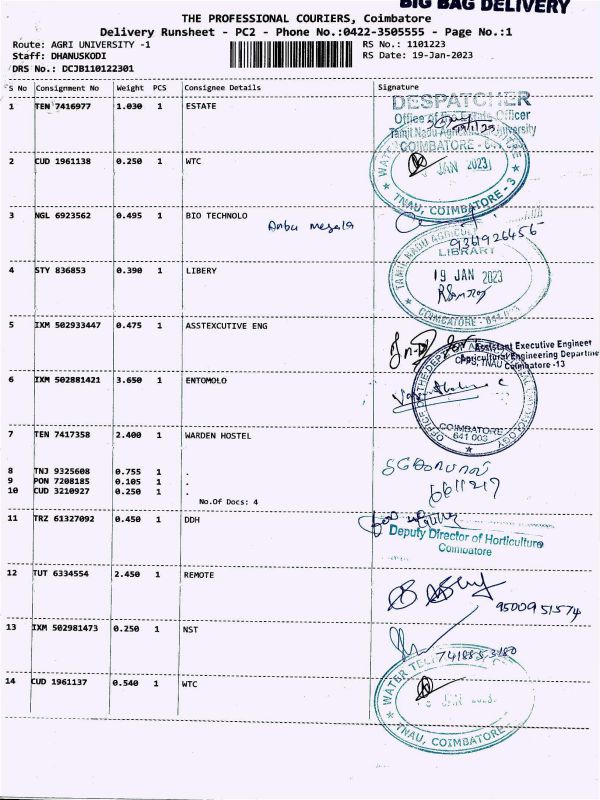 BIG BAG DELIVERY
THE PROFESSIONAL COURIERS, Coimbatore
Delivery Runsheet - PC2 - Phone No.:0422-3505555 - Page No.:1
Route: AGRI UNIVERSITY -1 RS No.: 1101223
Staff: DHANUSKODI RS Date: 19-Jan-2023
DRS No.: DCJB110122301
S No Consignment No Weight PCS Consignee Details Signature
1 TEN 7416977 1.030 1 ESTATE
DESPATCHER
Office of the Estate Officer
Tamil Nadu Agricultural University
COIMBATORE - 641
2 CUD 1961138 0.250 1 WTC
JAN 2023
TNAU, COIMBATORE - 3
3 NGL 6923562 0.495 1 BIO TECHNOLO
Anbu megala
9361926456
4 STY 836853 0.390 1 LIBERY
TAMIL NADU AGRICUL
LIBRARY
19 JAN 2023
COIMBATORE - 641 003
5 IXM 502933447 0.475 1 ASSTEXCUTIVE ENG
Assistant Executive Engineer
Agricultural Engineering Departme
CPPS, TNAU Coimbatore -13
6 IXM 502881421 3.650 1 ENTOMOLO
COIMBATORE
641 003
7 TEN 7417358 2.400 1 WARDEN HOSTEL
8 TNJ 9325608 0.755 1 .
9 PON 7208185 0.105 1 .
10 CUD 3210927 0.250 1 .
No.Of Docs: 4
6611217
11 TRZ 61327092 0.450 1 DDH
Deputy Director of Horticulture
Coimbatore
12 TUT 6334554 2.450 1 REMOTE
9500951574
13 IXM 502981473 0.250 1 NST
14 CUD 1961137 0.540 1 WTC
JAN 2023
TNAU, COIMBATORE